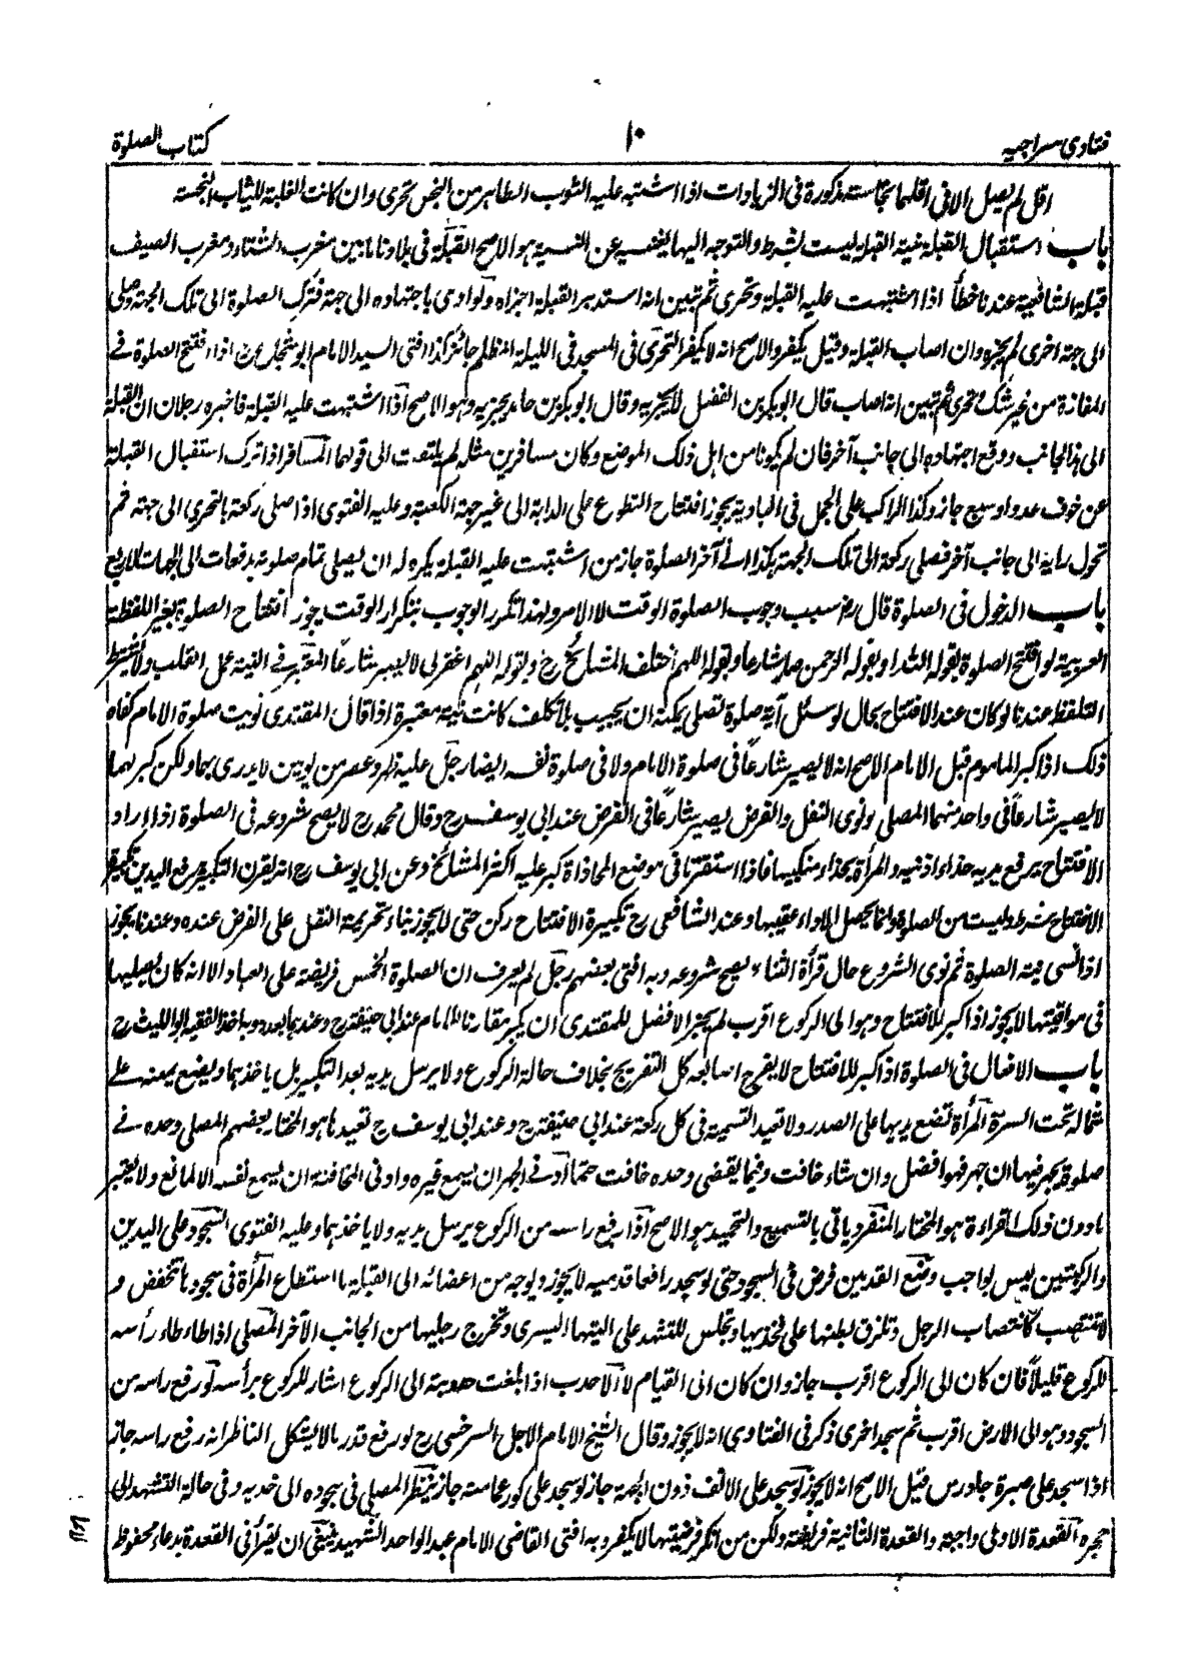 فتاوى سراجيه
١٠
كتاب الصلوة
اقل لم يصل الا فى اقلها نجاسة مذكورة فى الزيادات اذا اشتبه عليه الثوب الطاهر من النجس تحرى وان كانت الغلبة للثياب النجسة
باب استقبال القبلة نية القبلة ليست بشرط والتوجه اليها يغنيه عن النية هو الاصح القبلة فى بلادنا ما بين مغرب الشتاء ومغرب الصيف
قبلة الشافعية عندنا خطأ اذا اشتبهت عليه القبلة وتحرى ثم تبين انه استدبر القبلة اجزاه ولو ادى باجتهاده الى جهة فترك الصلوة الى تلك الجهة وصلى
الى جهة اخرى لم يجزه وان اصاب القبلة وقيل يكفر والاصح انه لا يكفر التحرى فى المسجد فى الليلة المظلم جائز كذا افتى السيد الامام ابو شجاع رح اذا افتتح الصلوة فے
المفازة من غير شك وتحرى ثم تبين انه اصاب قال ابو بكر بن الفضل لا يجزيه وقال ابو بكر بن حامد يجزيه وهو الاصح اذا اشتبهت عليه القبلة فاخبره رجلان ان القبلة
الى هذا الجانب ووقع اجتهاده الى جانب آخر فان لم يكونا من اهل ذلك الموضع وكان مسافرين مثله لم يلتفت الى قولهما المسافر اذا ترك استقبال القبلة
عن خوف عدو او سبع جاز وكذا الراكب على الجمل فى البادية يجوز افتتاح التطوع على الدابة الى غير جهة الكعبة وعليه الفتوى اذا صلى ركعة بالتحرى الى جهة ثم
تحول رايه الى جانب آخر فصلى ركعة الى تلك الجهة هكذا الے آخر الصلوة جاز من اشتبهت عليه القبلة يكره له ان يصلى تمام صلوته بدفعات الى الجهات الاربع
باب الدخول فى الصلوة قال رض سبب وجوب الصلوة الوقت لا الامر ولهذا تكرر الوجوب بتكرار الوقت يجوز افتتاح الصلوة بغير اللفظة
العربية لو افتتح الصلوة بقوله الله او بقوله الرحمن صار شارعا وبقوله اللهم اختلف المشائخ رح وبقوله اللهم اغفر لى لا يصير شارعاً المعتبر فے النية عمل القلب ولا يشترط
التلفظ عندنا لو كان عند الافتتاح بحال لو سئل أية صلوة تصلى يمكنه ان يجيب بلا تكلف كانت نية معتبرة اذا قال المقتدى نويت صلوة الامام كفاه
ذلك اذا كبر الماموم قبل الامام الاصح انه لا يصير شارعاً فى صلوة الامام ولا فى صلوة نفسه ايضا رجل عليه ظهر وعصر من يومين لا يدرى بهما ولكن كبر بهما
لا يصير شارعاً فى واحد منهما المصلى لو نوى النفل والفرض يصير شارعاً فى الفرض عند ابى يوسف رح وقال محمد رح لا يصح شروعه فى الصلوة اذا اراد
الافتتاح يرفع يديه حذاء اذنيه والمرأة بحذاء منكبيها فاذا استقرتا فى موضع المحاذاة كبر عليه اكثر المشائخ وعن ابى يوسف رح انه يقرن التكبير برفع اليدين تكبيرة
الافتتاح شرط وليست من الصلوة وانما يحصل الاداء عقيبها وعند الشافعى رح تكبيرة الافتتاح ركن حتى لا يجوز بناء تحريمة النفل على الفرض عنده وعندنا يجوز
اذا نسى نية الصلوة ثم نوى الشروع حال قرأة الثناء يصح شروعه وبه افتى بعضهم رجل لم يعرف ان الصلوة الخمس فريضة على العباد الا انه كان يصليها
فى مواقيتها لا يجوز اذا كبر للافتتاح وهو الى الركوع اقرب لم يجز الافضل للمقتدى ان يكبر مقارنا للامام عند ابى حنيفة رح وعندهما بعده وبه اخذ الفقيه ابو الليث رح
باب الافعال فى الصلوة اذا كبر للافتتاح لا يفرج اصابعه كل التفريج بخلاف حالة الركوع ولا يرسل يديه بعد التكبير بل ياخذ بهما ويضع يمينه علے
شماله تحت السرة المرأة تضع يديها على الصدر ولا تعيد التسمية فى كل ركعة عند ابى حنيفة رح وعند ابى يوسف رح تعيدها هو المختار بعضهم المصلى وحده فے
صلوة يجهر فيها ان جهر فهو افضل وان شاء خافت وفيما يقضى وحده خافت حتما ادنے الجهر ان يسمع غيره وادنى المخافتة ان يسمع نفسه الا لمانع ولا يعتبر
مادون ذلك القراءة هو المختار المنفرد ياتى بالتسميع والتحميد هو الاصح اذا رفع راسه من الركوع يرسل يديه ولا ياخذ بهما وعليه الفتوى السجود على اليدين
والركبتين ليس بواجب وضع القدمين فرض فى السجود حتى لو سجد رافعا قدميه لا يجوز ويوجه من اعضائه الى القبلة ما استطاع المرأة فى سجودها تنخفض و
لا تنتصب كانتصاب الرجل وتلزق بطنها على فخذيها وتجلس للتشهد على اليتها اليسرى وتخرج رجليها من الجانب الآخر المصلى اذا طاطاء رأسه
للركوع قليلاً فان كان الى الركوع اقرب جاز وان كان الى القيام لا الاحدب اذا بلغت حدوبته الى الركوع اشار للركوع برأسه لو رفع راسه من
السجود وهو الى الارض اقرب ثم سجد اخرى ذكر فى الفتاوى انه لا يجوز وقال الشيخ الامام الاجل السرخسى رح لو رفع قدر ما لا يشكل الناظر انه رفع راسه جاز
اذا سجد على صبرة جاورس قيل الاصح انه لا يجوز لو سجد على الانف دون الجبهة جاز لو سجد على كور عمامته جاز ينظر المصلى فى سجوده الى خديه وفى حالة التشهد الى
حجره القعدة الاولى واجبة والقعدة الثانية فريضة ولكن من انكر فرضيتها لا يكفر وبه افتى القاضى الامام عبد الواحد الشهيد ينبغى ان يقرأ فى القعدة بدعاء محفوظ